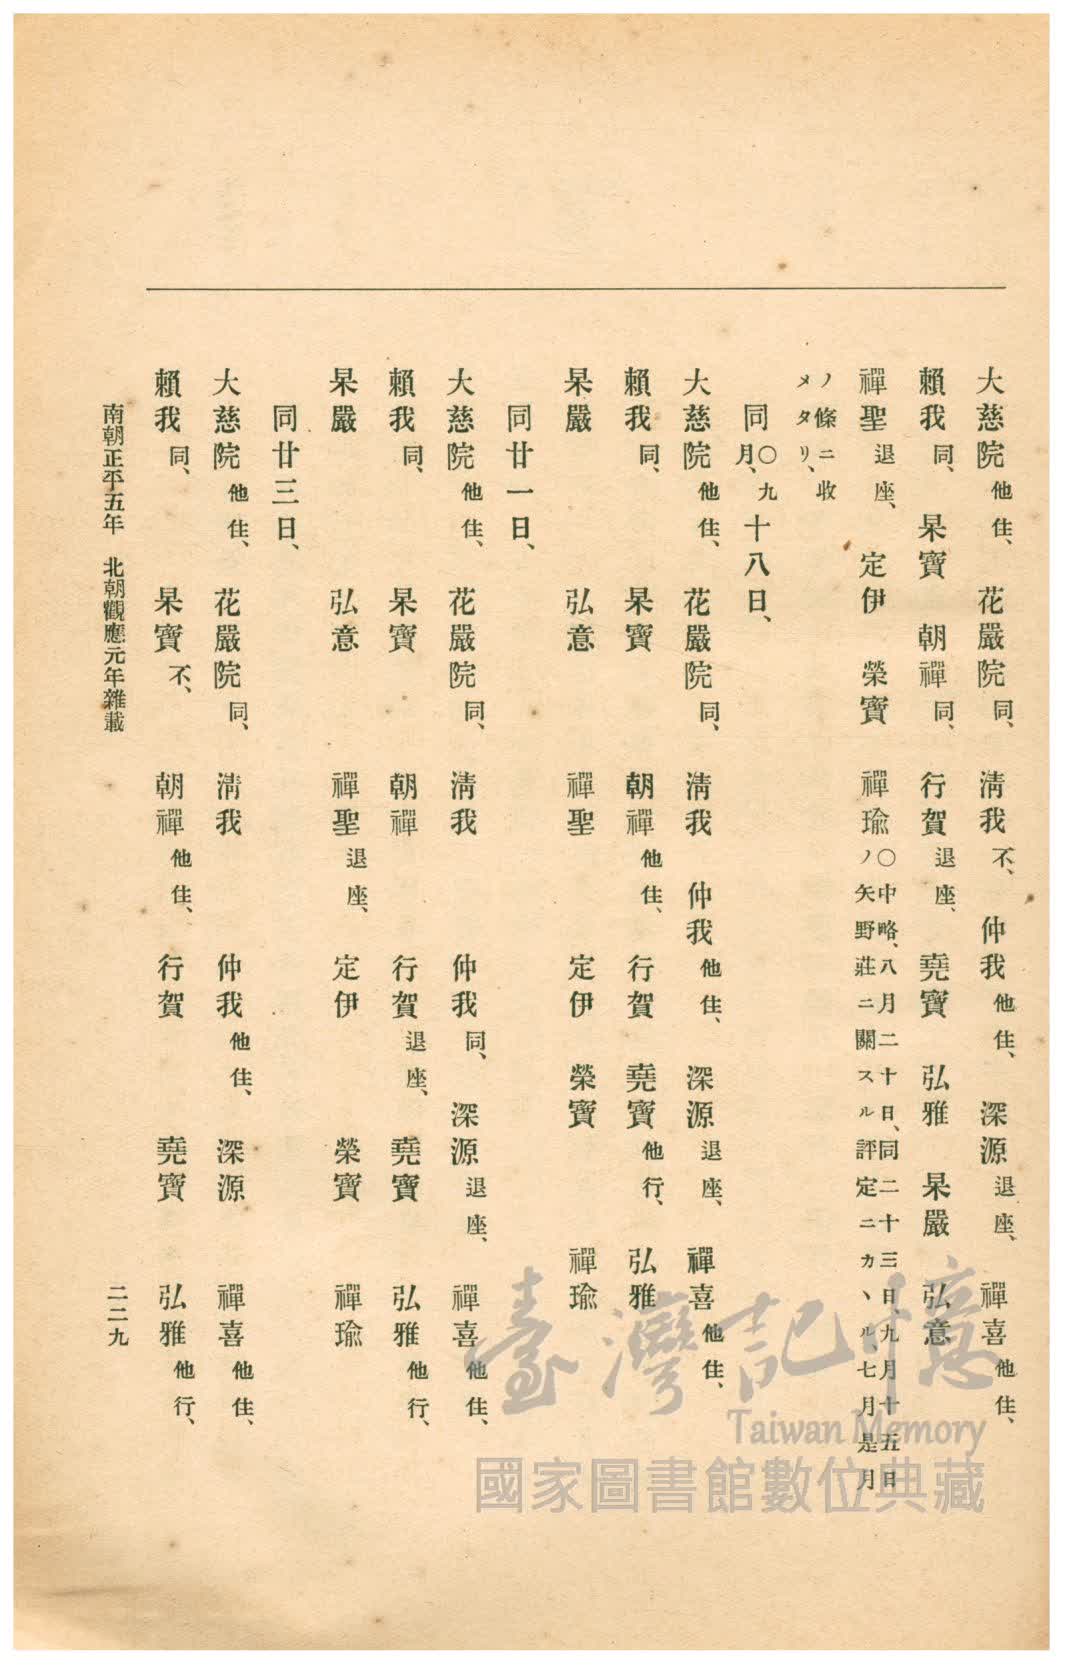 大慈院他住、　花嚴院同、　淸我不、　仲我他住、　深源退座、　禪喜他住、
賴我同、　杲寶　朝禪同、　行賀退座、　堯寶　弘雅　杲嚴　弘意
禪聖退座、　定伊　榮寶　禪瑜〇中略、八月二十日、同二十三日、九月十五日ノ矢野莊ニ關スル評定ニカヽル、七月是月
ノ條ニ收メタリ、
同〇九月、十八日、
大慈院他住、　花嚴院同、　淸我　仲我他住、　深源退座、　禪喜他住、
賴我同、　杲寶　朝禪他住、　行賀　堯寶他行、　弘雅
杲嚴　弘意　禪聖　定伊　榮寶　禪瑜
同廿一日、
大慈院他住、　花嚴院同、　淸我　仲我同、　深源退座、　禪喜他住、
賴我同、　杲寶　朝禪　行賀退座、　堯寶　弘雅他行、
杲嚴　弘意　禪聖退座、　定伊　榮寶　禪瑜
同廿三日、
大慈院他住、　花嚴院同、　淸我　仲我他住、　深源　禪喜他住、
賴我同、　杲寶不、　朝禪他住、　行賀　堯寶　弘雅他行、
南朝正平五年　北朝觀應元年雜載
二二九
臺灣記憶
Taiwan Memory
國家圖書館數位典藏